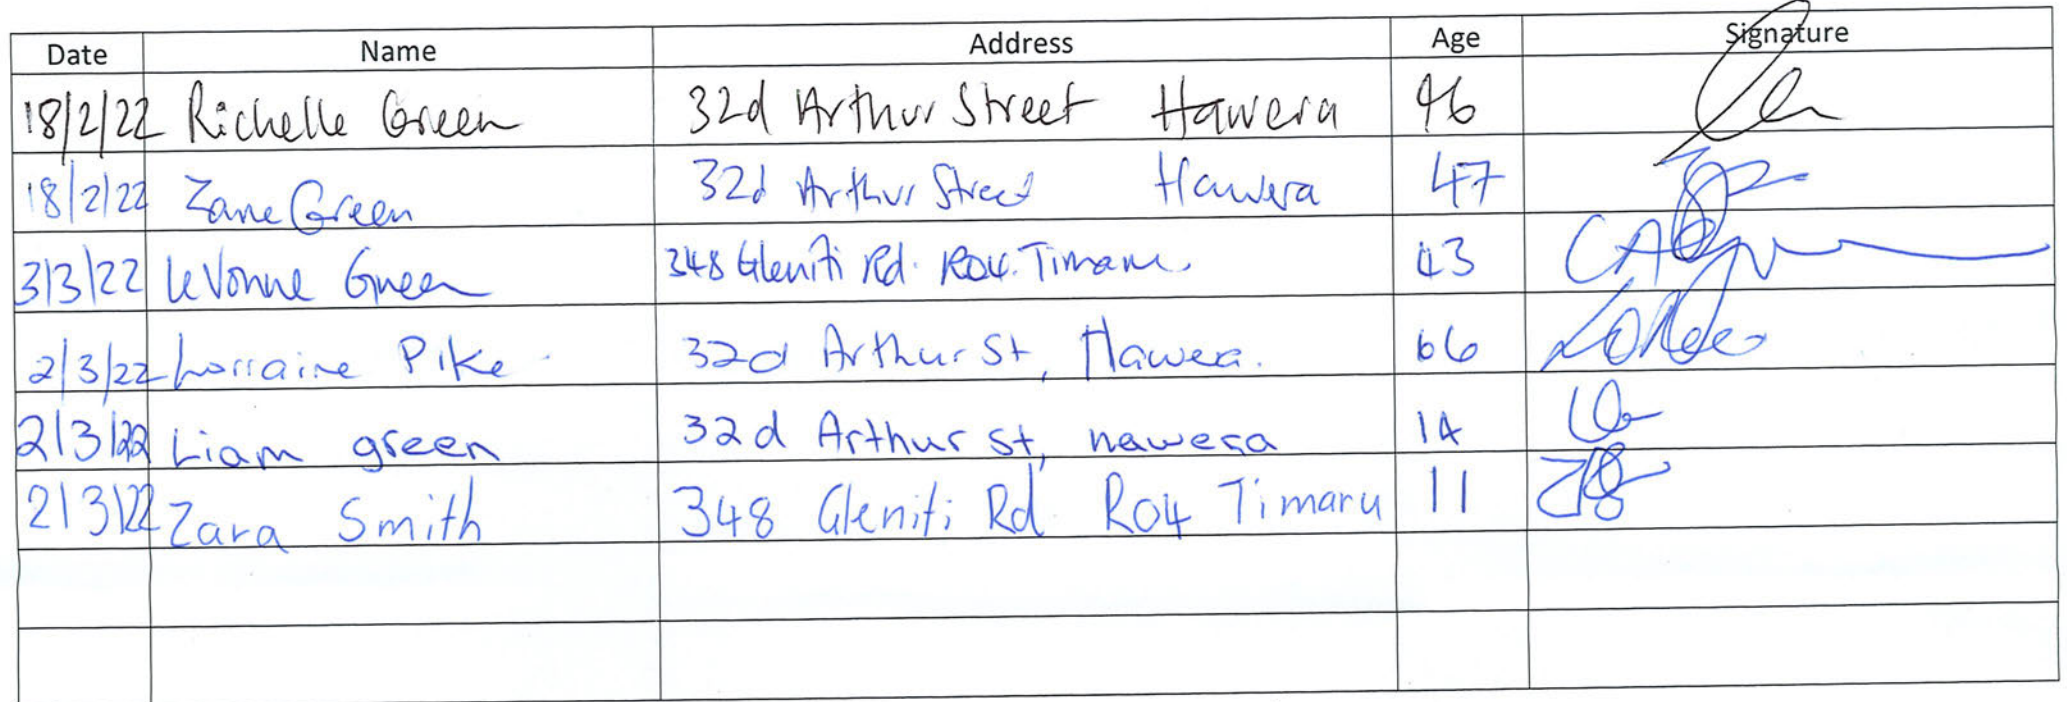 Date Name Address Age Signature
18/2/22 Richelle Green 32d Arthur Street Hawera 46
18/2/22 Zane Green 32d Arthur Street Hawera 47
3/3/22 LeVonne Green 348 Gleniti Rd. RO4. Timaru. 43
2/3/22 Lorraine Pike 32d Arthur St, Hawera. 66
2/3/22 Liam green 32d Arthur st, hawera 14
2/3/22 Zara Smith 348 Gleniti Rd RO4 Timaru 11